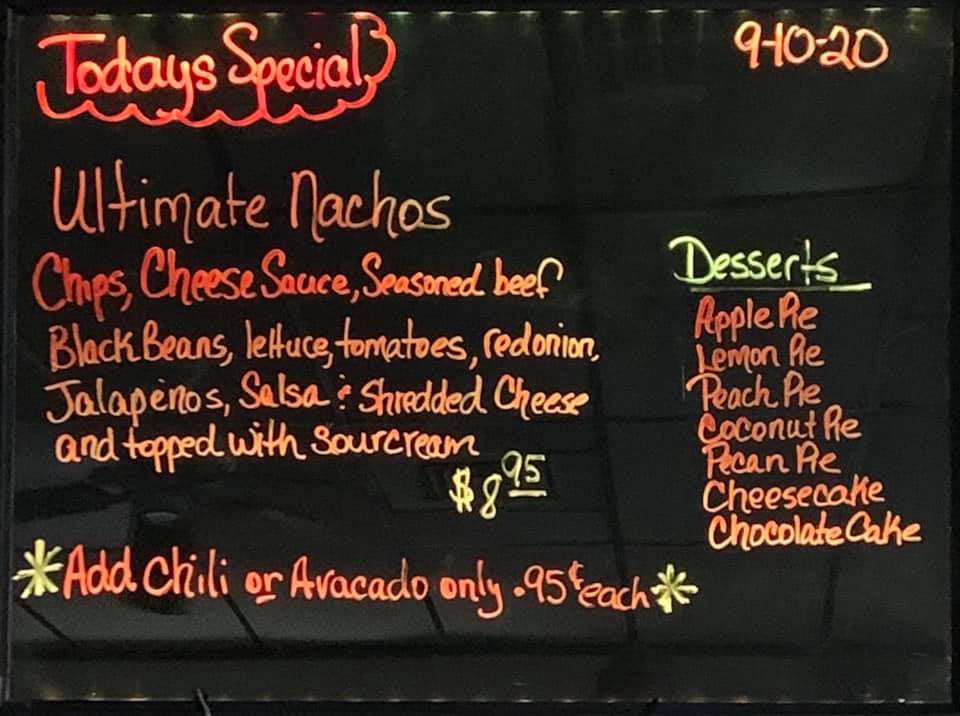 Todays Special
9-10-20
Ultimate Nachos
Chips, Cheese Sauce, Seasoned beef
Black Beans, lettuce, tomatoes, red onion,
Jalapenos, Salsa & Shredded Cheese
and topped with Sourcream
$8 95
*Add Chili or Avacado only .95¢ each*
Desserts
Apple Pie
Lemon Pie
Peach Pie
Coconut Pie
Pecan Pie
Cheesecake
Chocolate Cake